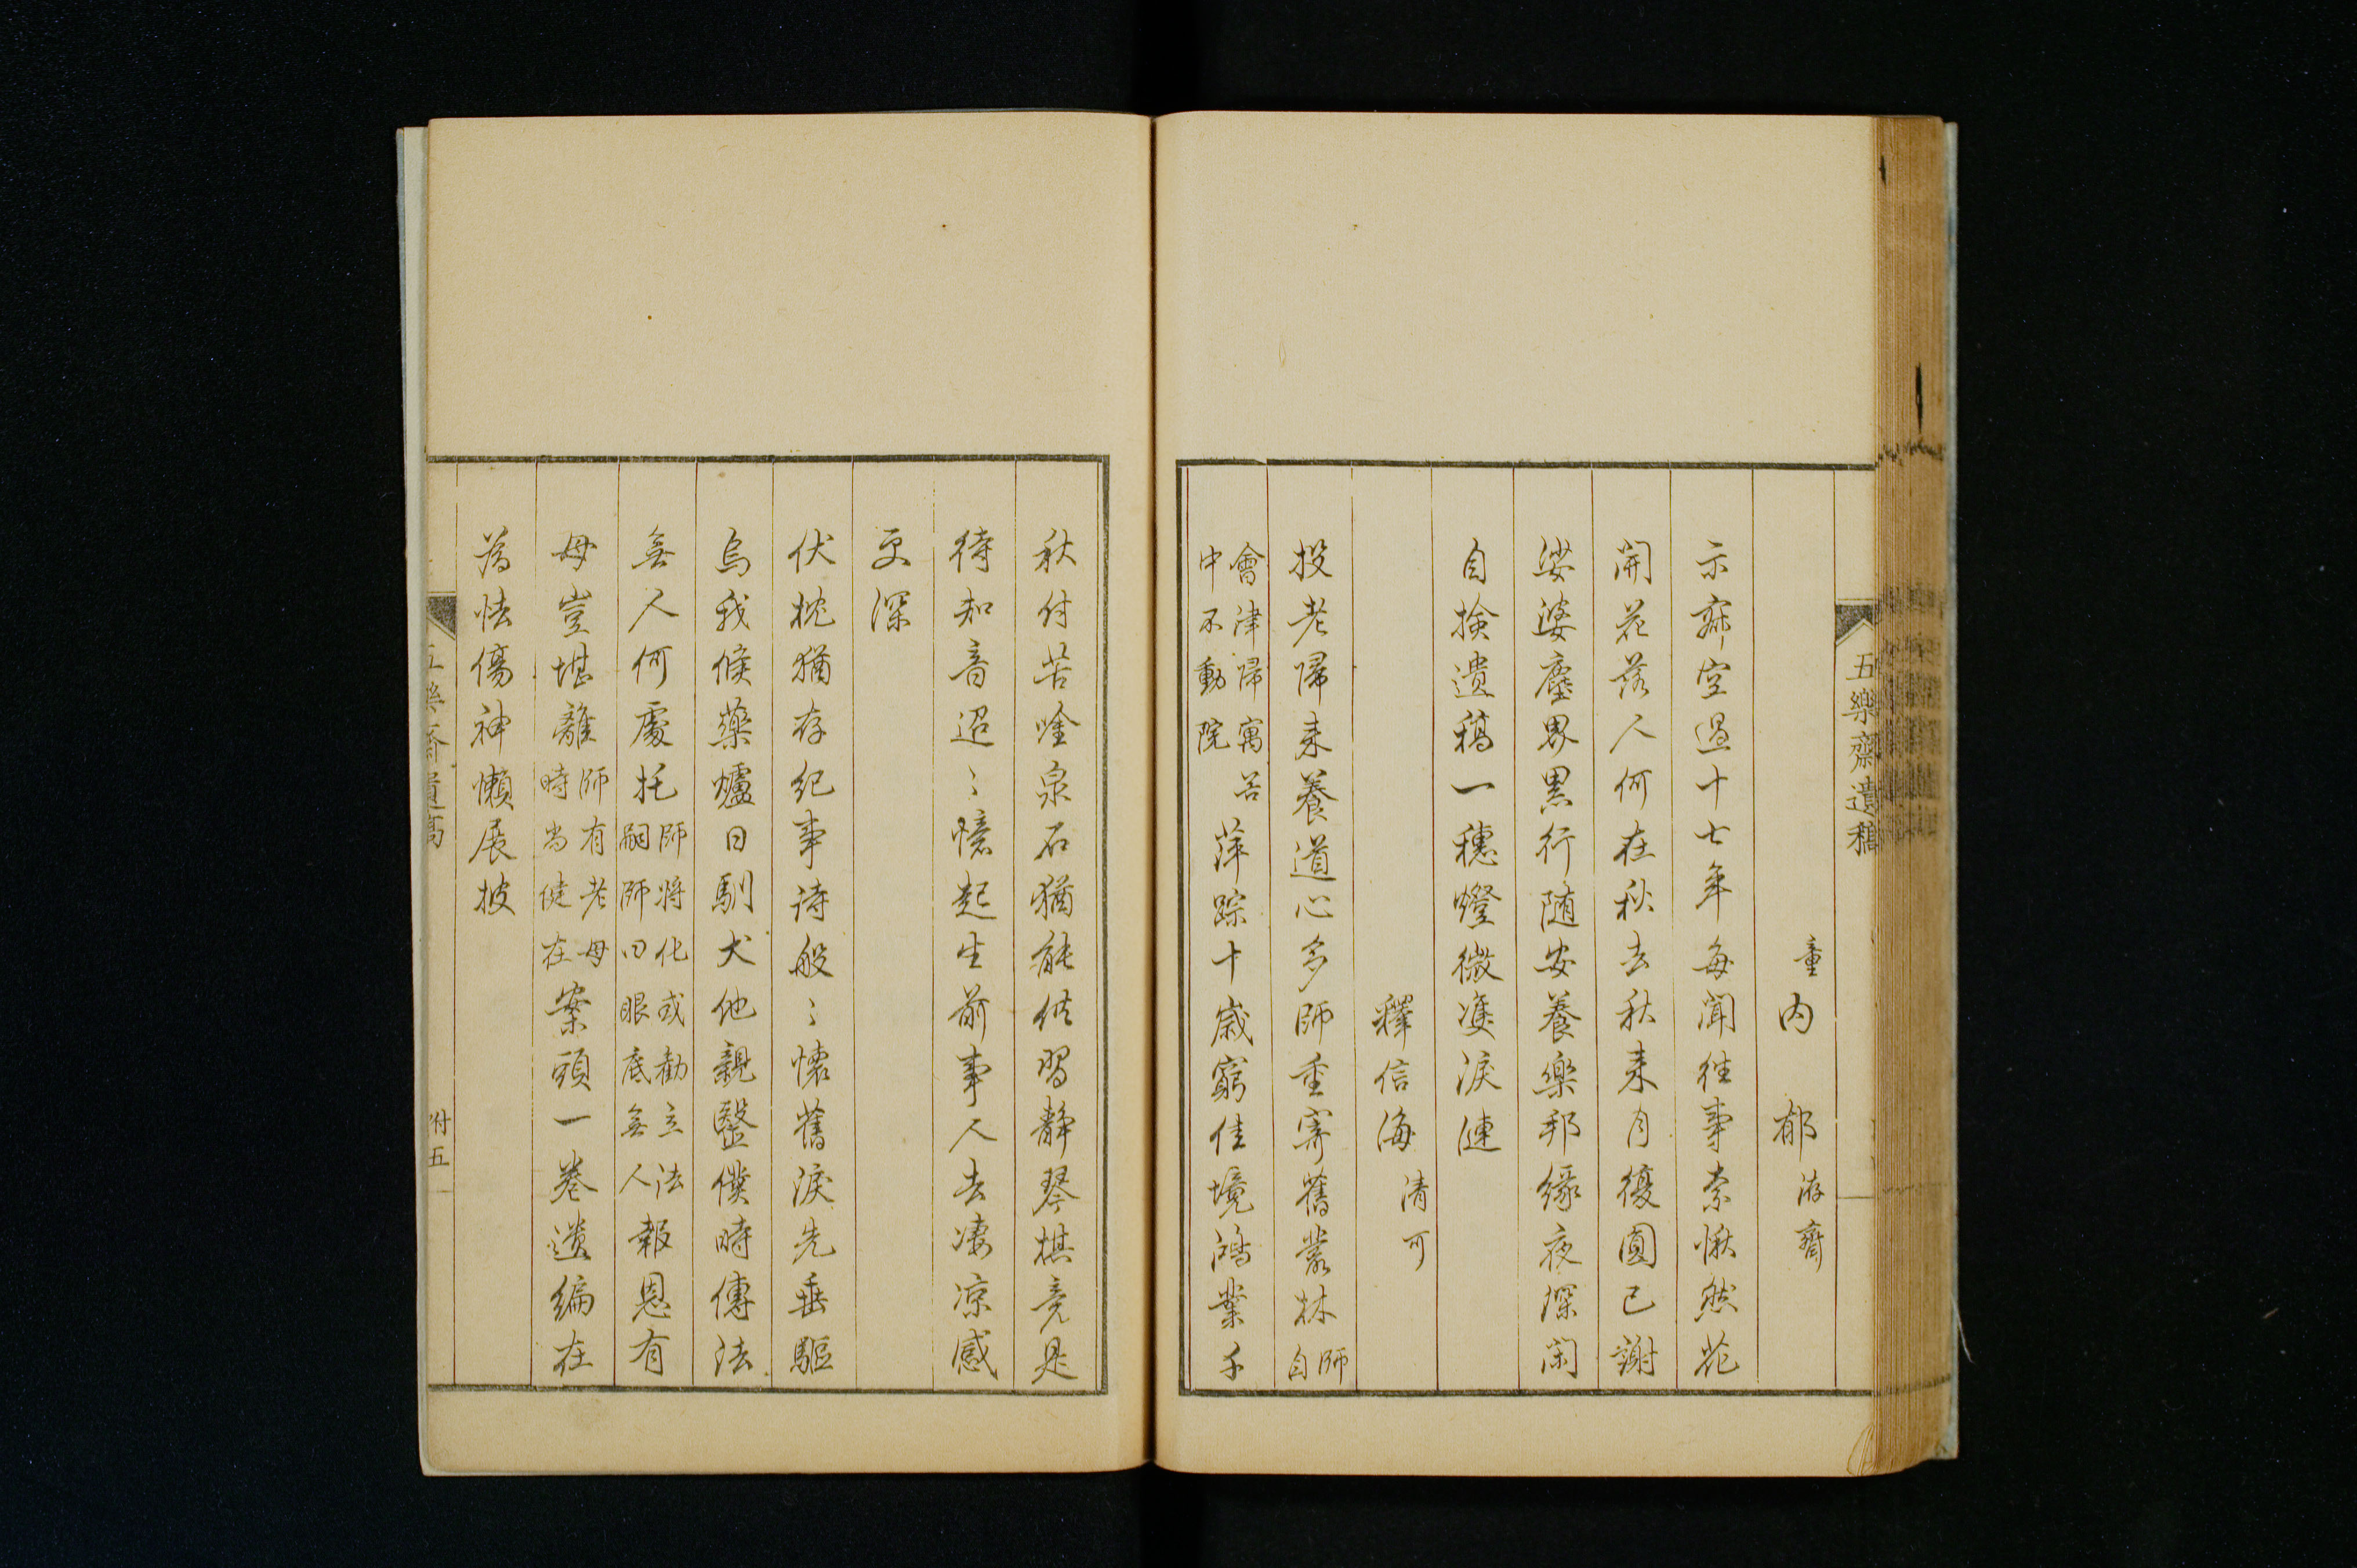 五樂齋遺稿
童內 郁 游齋
示寂空過十七年每聞往事索愀然花
開花落人何在秋去秋來月復圓已謝
娑婆塵界黑行随安養樂邦緣夜深閑
自撿遺稿一穗燈微雙淚漣
釋信海 清可
投老歸来養道心多師重寄舊叢林 師自
會津歸寓若中不動院 萍踪十歲窮佳境鴻業千
秋付苦唫泉石猶能供習靜琴棋竟是
待知音迢〻憶起生前事人去凄凉感
更深
伏枕猶存紀事詩般〻懷舊淚先垂驅
烏我候藥爐日馴犬他親毉僕時傳法
無人何處托 師將化或勸立法嗣師曰眼底無人 報恩有
母豈堪離 師有老母時尚健在 案頭一卷遺編在
為怯傷神懶展披
五樂齋遺稿
附五